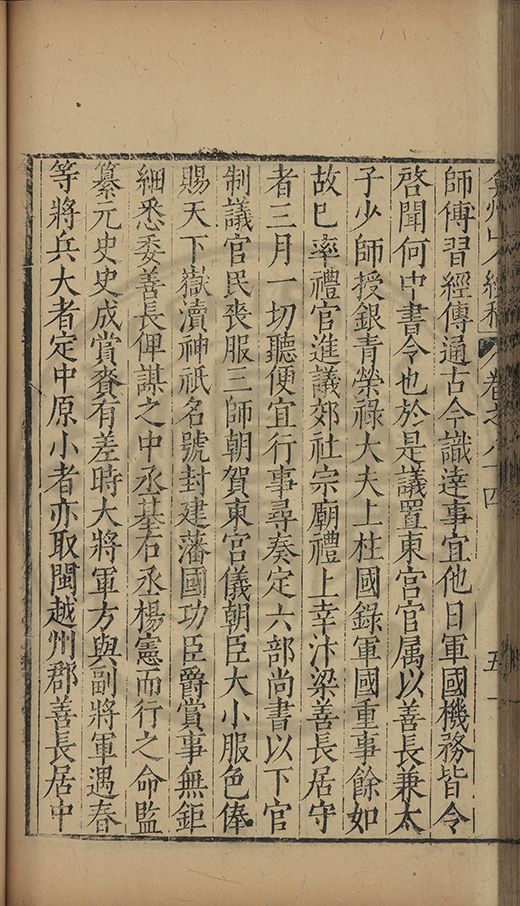 弇州山人續稿 卷之八十四 五
師傅習經傳通古今識達事宜他日軍國機務皆令
啓聞何中書令也於是議置東宮官属以善長兼太
子少師授銀青榮祿大夫上柱國錄軍國重事餘如
故巳率禮官進議郊社宗廟禮上幸汴梁善長居守
者三月一切聽便宜行事尋奏定六部尚書以下官
制議官民喪服三師朝賀東宮儀朝臣大小服色俸
賜天下嶽瀆神祇名號封建藩國功臣爵賞事無鉅
細悉委善長俾謀之中丞基右丞楊憲而行之命監
纂元史史成賞賚有差時大將軍方與副將軍遇春
等將兵大者定中原小者亦取閩越州郡善長居中